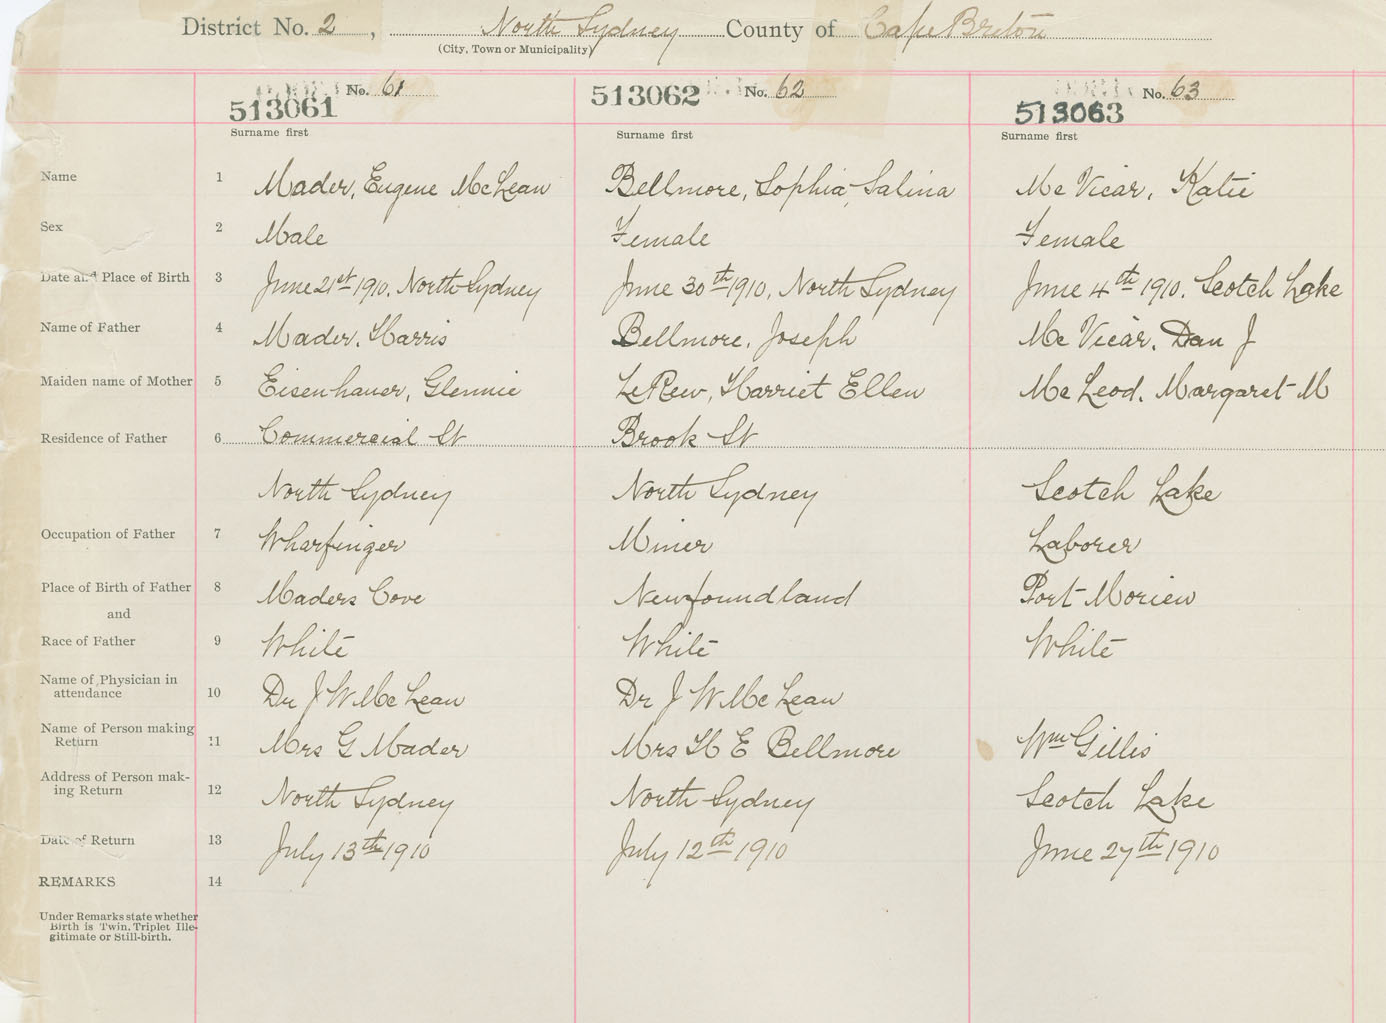 District No. 2, North Sydney County of Cape Breton
(City, Town or Municipality)
No. 61 No. 62 No. 63
513061 513062 513063
Surname first Surname first Surname first
Name 1 Mader, Eugene McLean Bellmore, Sophia Salina Mc Vicar, Katie
Sex 2 Male Female Female
Date and Place of Birth 3 June 21st 1910, North Sydney June 30th 1910, North Sydney June 4th 1910. Scotch Lake
Name of Father 4 Mader, Harris Bellmore, Joseph Mc Vicar, Dan J
Maiden name of Mother 5 Eisenhauer, Glennie LeRew, Harriet Ellen Mc Leod, Margaret M
Residence of Father 6 Commercial St Brook St
North Sydney North Sydney Scotch Lake
Occupation of Father 7 Wharfinger Miner Laborer
Place of Birth of Father 8 Maders Cove Newfoundland Port Morien
and
Race of Father 9 White White White
Name of Physician in
attendance 10 Dr J W McLean Dr J W McLean
Name of Person making
Return 11 Mrs G Mader Mrs H E Bellmore Wm Gillis
Address of Person mak-
ing Return 12 North Sydney North Sydney Scotch Lake
Date of Return 13 July 13th 1910 July 12th 1910 June 27th 1910
REMARKS 14
Under Remarks state whether
Birth is Twin, Triplet Ille-
gitimate or Still-birth.